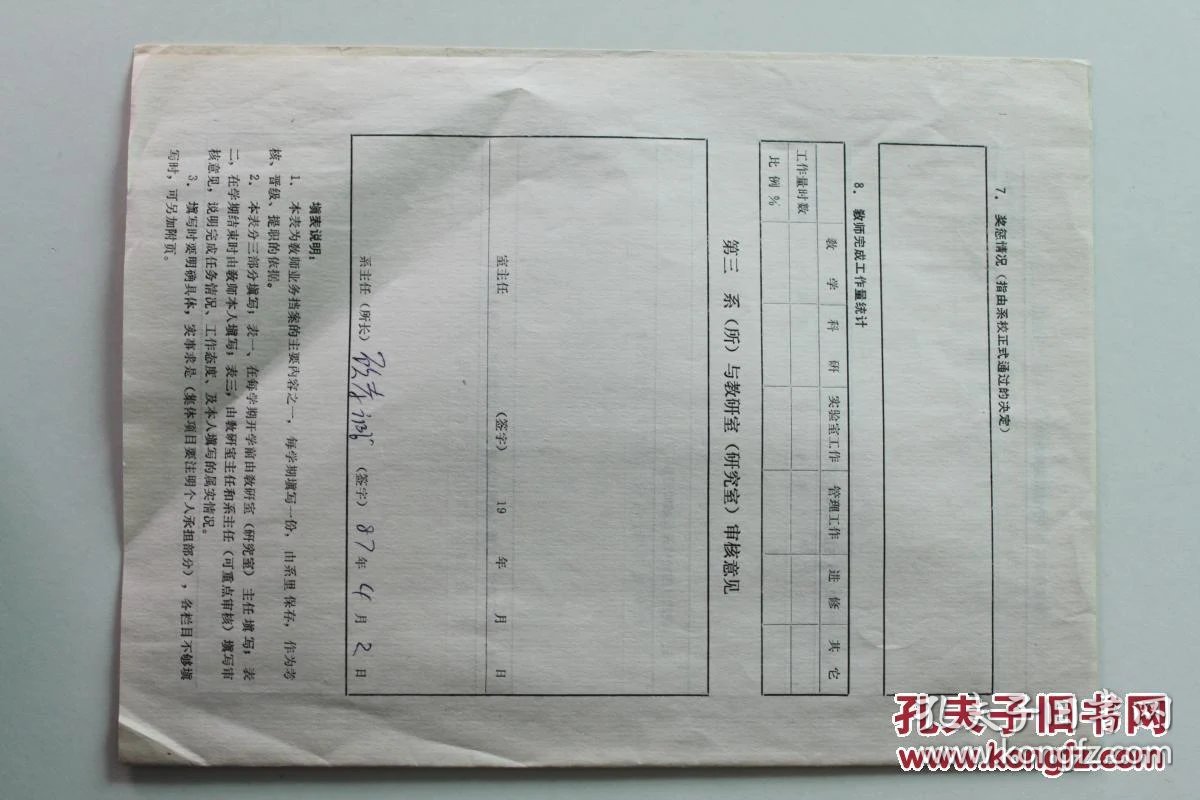 7. 奖惩情况（指由系校正式通过的决定）
8. 教师完成工作量统计
教 学 科 研 实验室工作 管理工作 进 修 其 它
工作量时数
比 例 %
第三 系（所）与教研室（研究室）审核意见
室主任 （签字） 19 年 月 日
系主任（所长） （签字） 87年 4月 2日
填表说明：
1．本表为教师业务档案的主要内容之一，每学期填写一份，由系里保存，作为考
核、晋级、提职的依据。
2．本表分三部分填写；表一、在每学期开学前由教研室（研究室）主任填写；表
二，在学期结束时由教师本人填写；表三，由教研室主任和系主任（可重点审核）填写审
核意见，说明完成任务情况、工作态度、及本人填写的属实情况。
3．填写时要明确具体，实事求是（集体项目要注明个人承担部分），各栏目不够填
写时，可另加附页。
孔夫子旧书网
www.kongfz.com